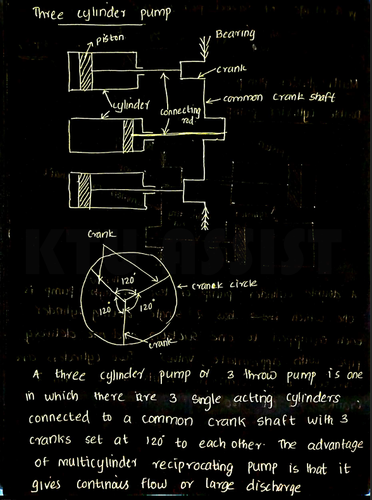 Three cylinder pump
piston
Bearing
crank
common crank shaft
cylinder
connecting
rod
crank
120°
120°
120°
crank circle
crank
A three cylinder pump or 3 throw pump is one
in which there are 3 single acting cylinders
connected to a common crank shaft with 3
cranks set at 120° to each other. The advantage
of multicylinder reciprocating pump is that it
gives continous flow or large discharge